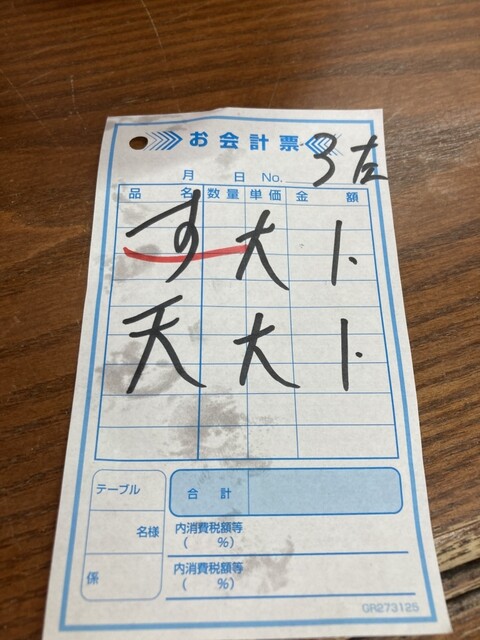 お会計票
3左
月 日 No.
品名 数量 単価 金額
す 大 1.
天 大 1.
テーブル
合計
名様
内消費税額等
( %)
係
内消費税額等
( %)
GR273125